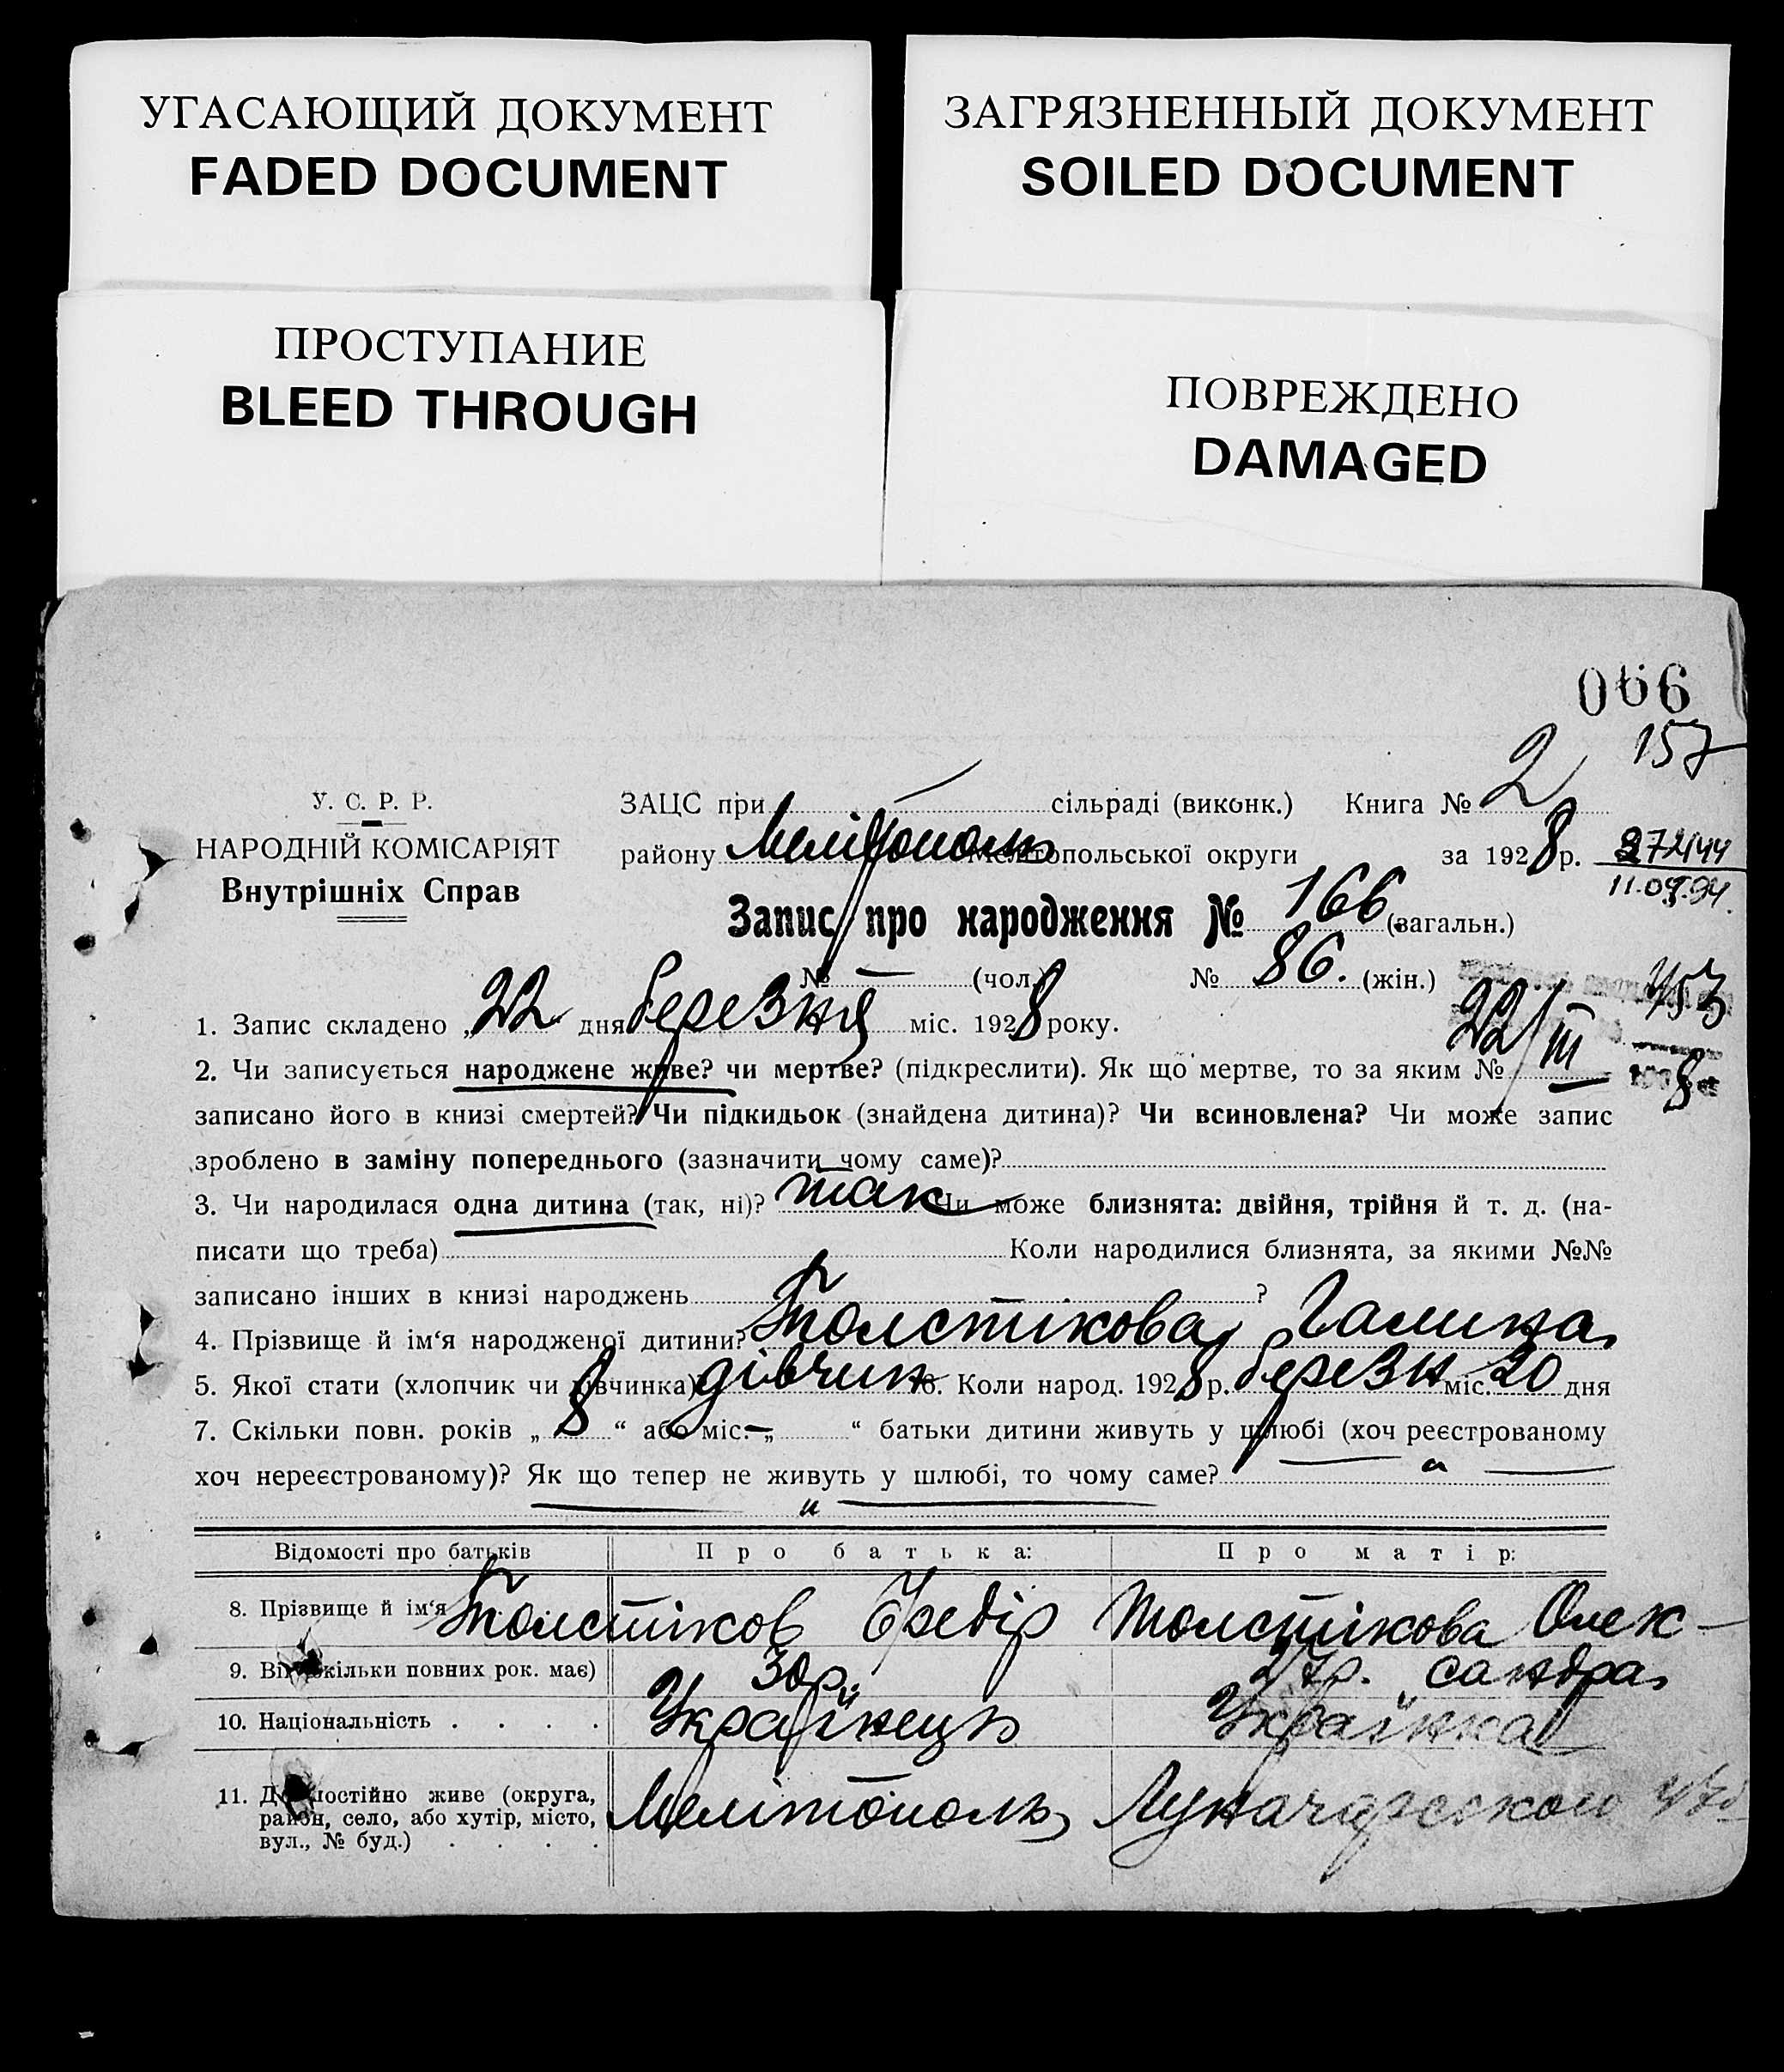 УГАСАЮЩИЙ ДОКУМЕНТ
FADED DOCUMENT
ЗАГРЯЗНЕННЫЙ ДОКУМЕНТ
SOILED DOCUMENT
ПРОСТУПАНИЕ
BLEED THROUGH
ПОВРЕЖДЕНО
DAMAGED
066
157
У. С. Р. Р.
НАРОДНІЙ КОМІСАРІЯТ
Внутрішніх Справ
ЗАЦС при — сільраді (виконк.) Книга № 2
району Мелітополь Мелітопольської округи за 1928 р.
11.09.94.
Запис про народження № 166 (загальн.)
№ — (чол.) № 86. (жін.)
1. Запис складено „22 дня березня міс. 1928 року.
22/III
8
2. Чи записується народжене живе? чи мертве? (підкреслити). Як що мертве, то за яким №
записано його в книзі смертей? Чи підкидьок (знайдена дитина)? Чи всиновлена? Чи може запис
зроблено в заміну попереднього (зазначити чому саме)?
3. Чи народилася одна дитина (так, ні)? так Чи може близнята: двійня, трійня й т. д. (на-
писати що треба) Коли народилися близнята, за якими №№
записано інших в книзі народжень — ?
4. Прізвище й ім‘я народженої дитини? Толстікова Галина
5. Якої стати (хлопчик чи дівчинка) дівчин 6. Коли народ. 1928 р. березн міс. 20 дня
7. Скільки повн. років „ 8 “ або міс. — „ “ батьки дитини живуть у шлюбі (хоч реєстрованому
хоч нереєстрованому)? Як що тепер не живуть у шлюбі, то чому саме? — „ —
— „ —
Відомості про батьків Про батька: Про матір:
8. Прізвище й ім‘я Толстіков Федір Толстікова Олек-
сандра
9. Вік (скільки повних рок. має) 30 р. 27 р.
10. Національність . . . . Українець Українка
11. Де постійно живе (округа,
район, село, або хутір, місто,
вул., № буд.) . . . .
Мелітополь Луначарського